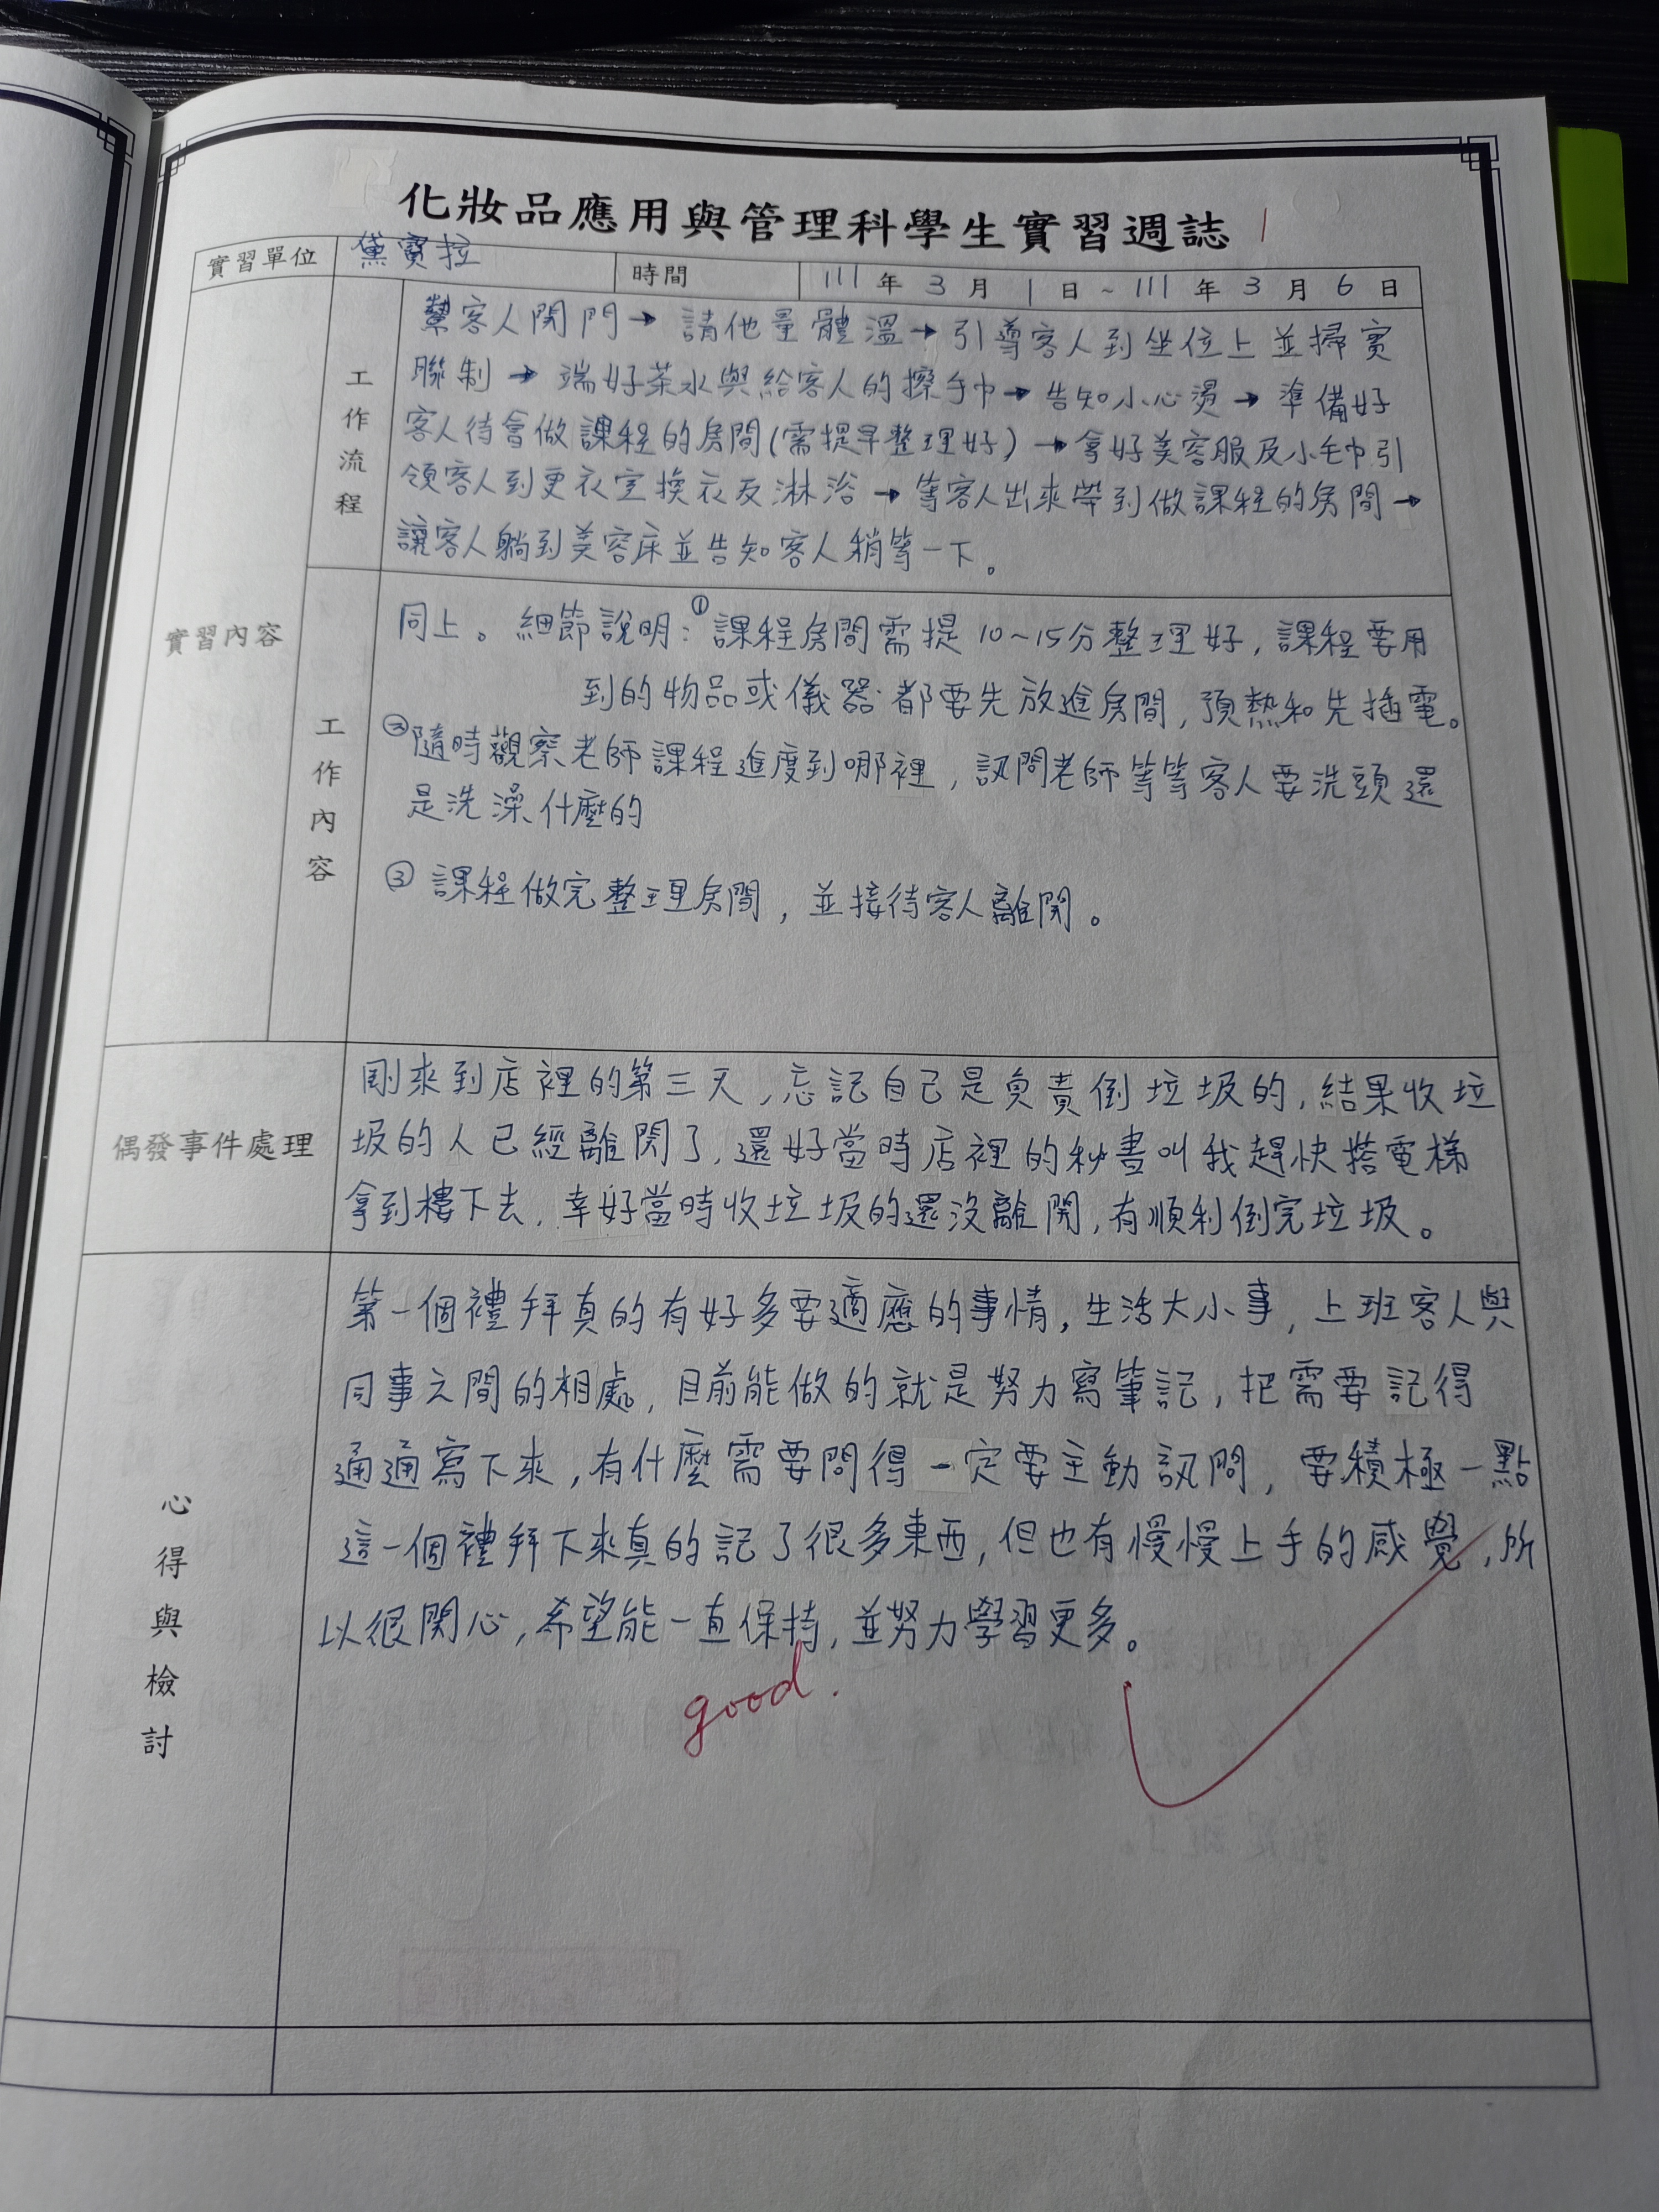 化妝品應用與管理科學生實習週誌 1
實習單位 黛寶拉 時間 111年3月1日~111年3月6日
實習內容
工作流程
幫客人開門→請他量體溫→引導客人到坐位上並掃實
聯制→端好茶水與給客人的擦手巾→告知小心燙→準備好
客人待會做課程的房間(需提早整理好)→拿好美容服及小毛巾引
領客人到更衣室換衣及淋浴→等客人出來帶到做課程的房間→
讓客人躺到美容床並告知客人稍等一下。
工作內容
同上。細節說明:①課程房間需提10~15分整理好,課程要用
到的物品或儀器都要先放進房間,預熱和先插電。
②隨時觀察老師課程進度到哪裡,訊問老師等等客人要洗頭還
是洗澡什麼的
③課程做完整理房間,並接待客人離開。
偶發事件處理
剛來到店裡的第三天,忘記自己是負責倒垃圾的,結果收垃
圾的人已經離開了,還好當時店裡的秘書叫我趕快搭電梯
拿到樓下去,幸好當時收垃圾的還沒離開,有順利倒完垃圾。
心得與檢討
第一個禮拜真的有好多要適應的事情,生活大小事,上班客人與
同事之間的相處,目前能做的就是努力寫筆記,把需要記得
通通寫下來,有什麼需要問得一定要主動訊問,要積極一點
這一個禮拜下來真的記了很多東西,但也有慢慢上手的感覺,所
以很開心,希望能一直保持,並努力學習更多。
good.